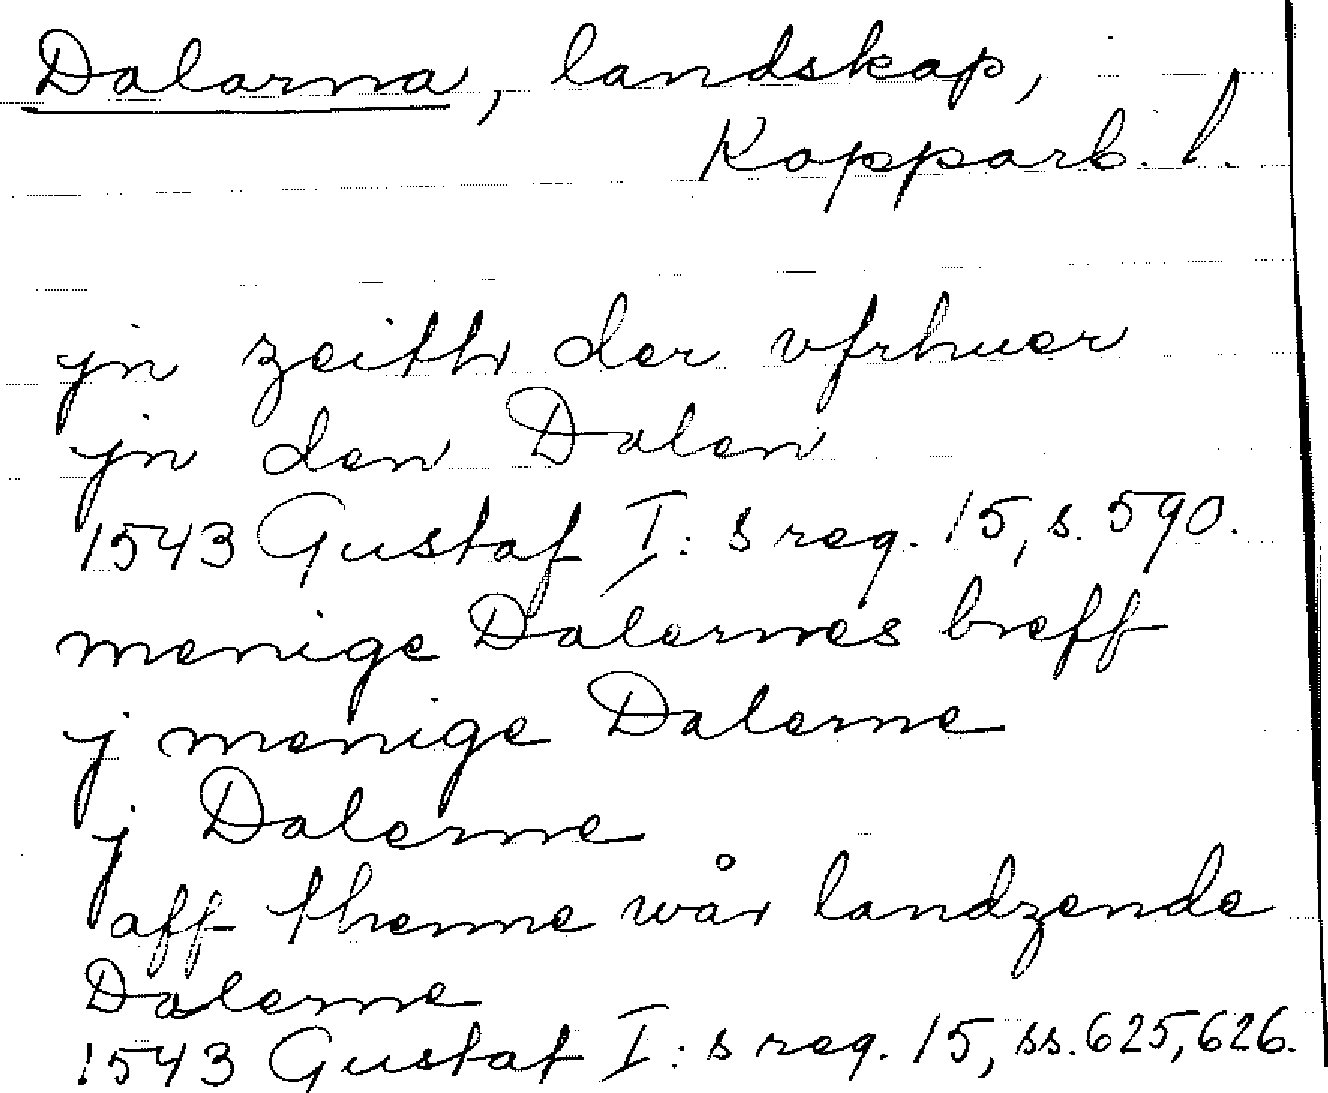 Dalarna, landskap,
Kopparb. l.
jn zeith der vfrhuer
jn den Dalen
1543 Gustaf I: s reg. 15, s. 590.
menige Dalernes breff
j menige Dalerne
j Dalerne
aff thenne wår landzende
Dalerne
1543 Gustaf I: s reg. 15, ss. 625, 626.